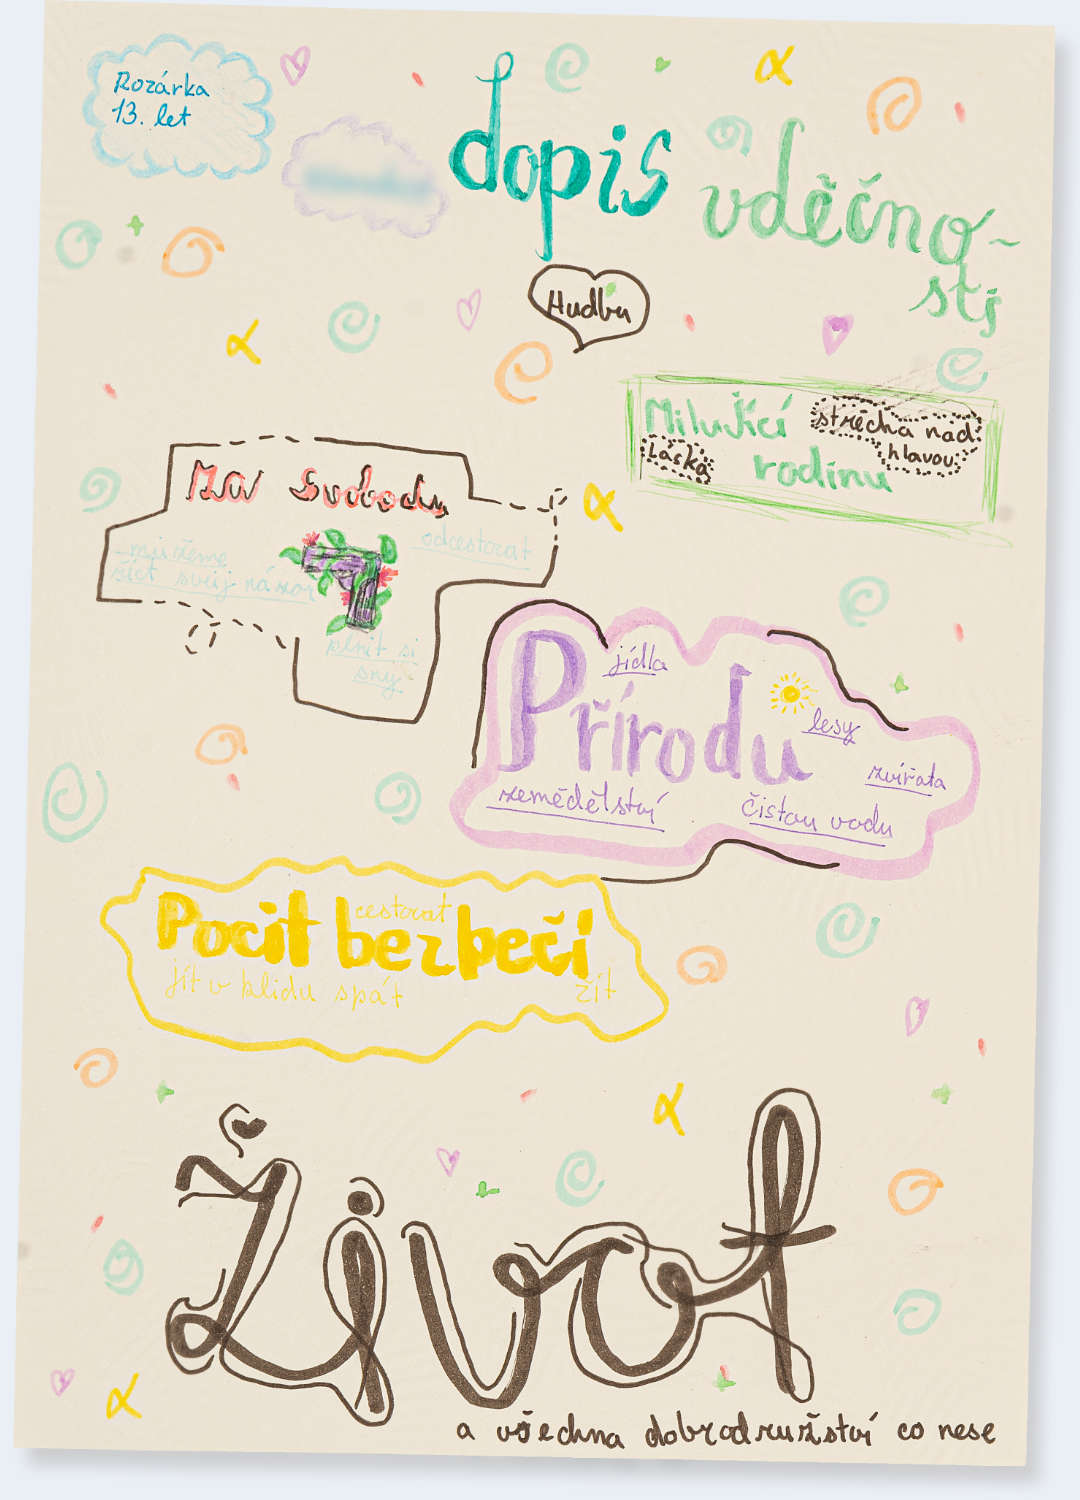 Rozárka
13. let
dopis
vděčno-
sti
Hudbu
Milující
střecha nad
hlavou
Láska
rodinu
Za svobodu
můžeme
říct svůj názor
odcestovat
plnit si
sny
Přírodu
jídla
lesy
zvířata
zemědělství
čistou vodu
Pocit bezpečí
cestovat
jít v klidu spát
žít
Život
a všechna dobrodružství co nese